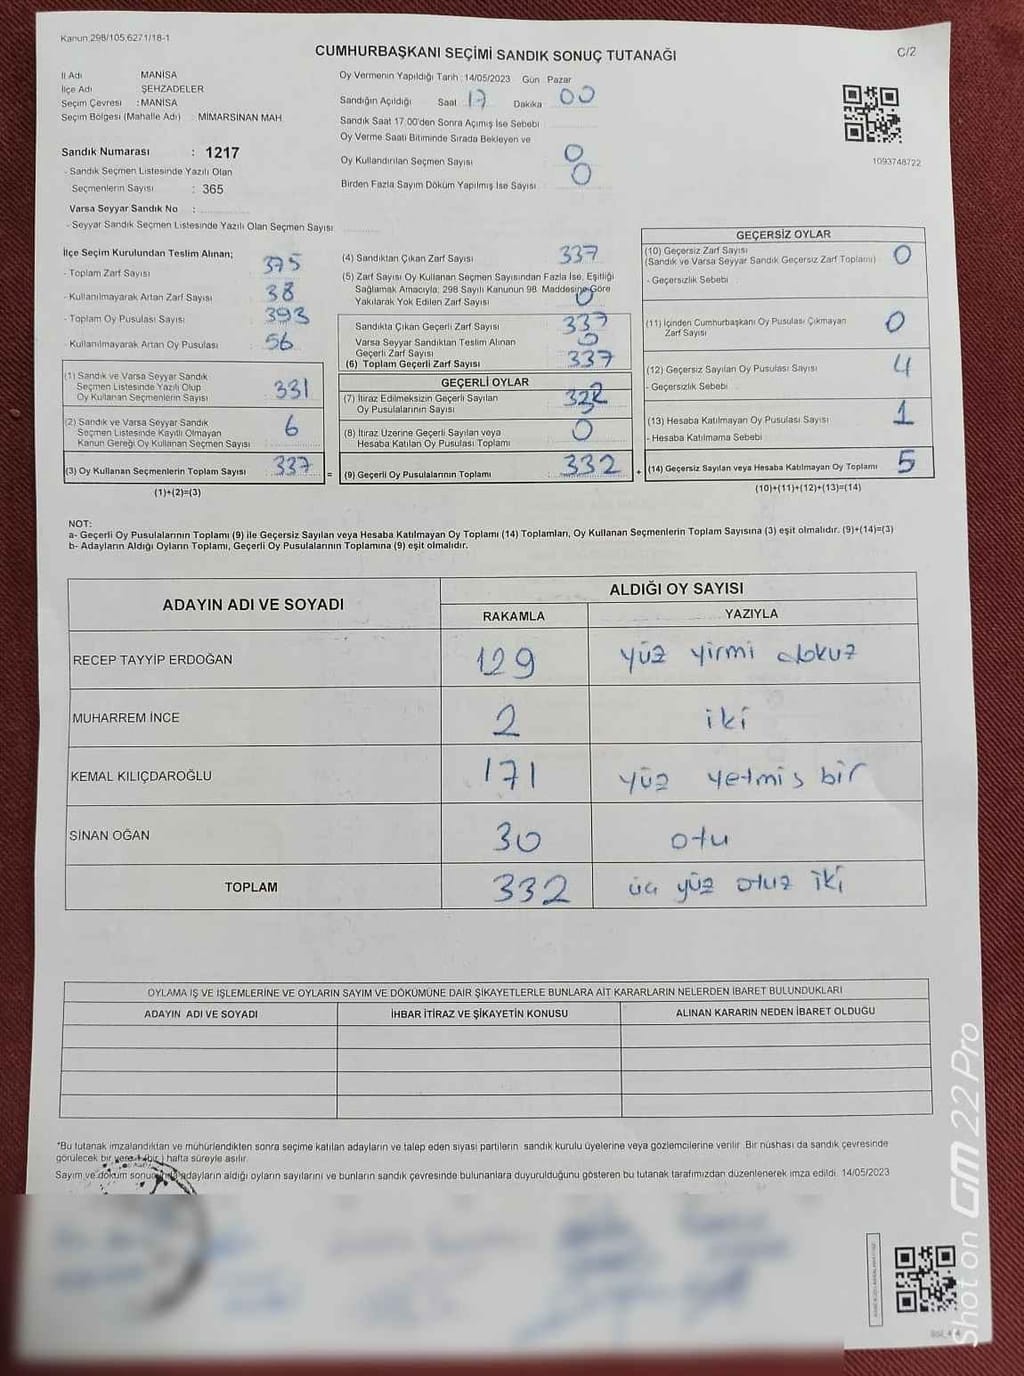 Kanun 298/105,6271/18-1
CUMHURBAŞKANI SEÇİMİ SANDIK SONUÇ TUTANAĞI
C/2
İl Adı MANİSA
İlçe Adı ŞEHZADELER
Seçim Çevresi : MANİSA
Seçim Bölgesi (Mahalle Adı) : MİMARSİNAN MAH.
Sandık Numarası : 1217
- Sandık Seçmen Listesinde Yazılı Olan
Seçmenlerin Sayısı : 365
Varsa Seyyar Sandık No :
- Seyyar Sandık Seçmen Listesinde Yazılı Olan Seçmen Sayısı
Oy Vermenin Yapıldığı Tarih :14/05/2023 Gün Pazar
Sandığın Açıldığı Saat 17 Dakika 00
Sandık Saat 17.00'den Sonra Açımış İse Sebebi
Oy Verme Saati Bitiminde Sırada Bekleyen ve
Oy Kullandırılan Seçmen Sayısı 0
Birden Fazla Sayım Döküm Yapılmış İse Sayısı 0
1093748722
İlçe Seçim Kurulundan Teslim Alınan;
- Toplam Zarf Sayısı 375
- Kullanılmayarak Artan Zarf Sayısı 38
- Toplam Oy Pusulası Sayısı 393
- Kullanılmayarak Artan Oy Pusulası 56
(1) Sandık ve Varsa Seyyar Sandık
Seçmen Listesinde Yazılı Olup
Oy Kullanan Seçmenlerin Sayısı 331
(2) Sandık ve Varsa Seyyar Sandık
Seçmen Listesinde Kayıtlı Olmayan
Kanun Gereği Oy Kullanan Seçmen Sayısı 6
(3) Oy Kullanan Seçmenlerin Toplam Sayısı 337
(1)+(2)=(3)
(4) Sandıktan Çıkan Zarf Sayısı 337
(5) Zarf Sayısı Oy Kullanan Seçmen Sayısından Fazla İse, Eşitliği
Sağlamak Amacıyla; 298 Sayılı Kanunun 98. Maddesine Göre
Yakılarak Yok Edilen Zarf Sayısı 0
Sandıkta Çıkan Geçerli Zarf Sayısı 337
Varsa Seyyar Sandıktan Teslim Alınan
Geçerli Zarf Sayısı 0
(6) Toplam Geçerli Zarf Sayısı 337
GEÇERLİ OYLAR
(7) İtiraz Edilmeksizin Geçerli Sayılan
Oy Pusulalarının Sayısı 332
(8) İtiraz Üzerine Geçerli Sayılan veya
Hesaba Katılan Oy Pusulası Toplamı 0
= (9) Geçerli Oy Pusulalarının Toplamı 332
GEÇERSİZ OYLAR
(10) Geçersiz Zarf Sayısı
(Sandık ve Varsa Seyyar Sandık Geçersiz Zarf Toplamı) 0
- Geçersizlik Sebebi
(11) İçinden Cumhurbaşkanı Oy Pusulası Çıkmayan
Zarf Sayısı 0
(12) Geçersiz Sayılan Oy Pusulası Sayısı 4
- Geçersizlik Sebebi
(13) Hesaba Katılmayan Oy Pusulası Sayısı 1
- Hesaba Katılmama Sebebi
+ (14) Geçersiz Sayılan veya Hesaba Katılmayan Oy Toplamı 5
(10)+(11)+(12)+(13)=(14)
NOT:
a- Geçerli Oy Pusulalarının Toplamı (9) ile Geçersiz Sayılan veya Hesaba Katılmayan Oy Toplamı (14) Toplamları, Oy Kullanan Seçmenlerin Toplam Sayısına (3) eşit olmalıdır. (9)+(14)=(3)
b- Adayların Aldığı Oyların Toplamı, Geçerli Oy Pusulalarının Toplamına (9) eşit olmalıdır.
ADAYIN ADI VE SOYADI ALDIĞI OY SAYISI
RAKAMLA YAZIYLA
RECEP TAYYİP ERDOĞAN 129 yüz yirmi dokuz
MUHARREM İNCE 2 iki
KEMAL KILIÇDAROĞLU 171 yüz yetmiş bir
SİNAN OĞAN 30 otu
TOPLAM 332 üç yüz otuz iki
OYLAMA İŞ VE İŞLEMLERİNE VE OYLARIN SAYIM VE DÖKÜMÜNE DAİR ŞİKAYETLERLE BUNLARA AİT KARARLARIN NELERDEN İBARET BULUNDUKLARI
ADAYIN ADI VE SOYADI İHBAR İTİRAZ VE ŞİKAYETİN KONUSU ALINAN KARARIN NEDEN İBARET OLDUĞU
*Bu tutanak imzalandıktan ve mühürlendikten sonra seçime katılan adayların ve talep eden siyasi partilerin sandık kurulu üyelerine veya gözlemcilerine verilir. Bir nüshası da sandık çevresinde
görülecek bir yere 1 (bir ) hafta süreyle asılır.
Sayım ve döküm adayların aldığı oyların sayılarını ve bunların sandık çevresinde bulunanlara duyurulduğunu gösteren bu tutanak tarafımızdan düzenlenerek imza edildi. 14/05/2023
Shot on GM 22 Pro